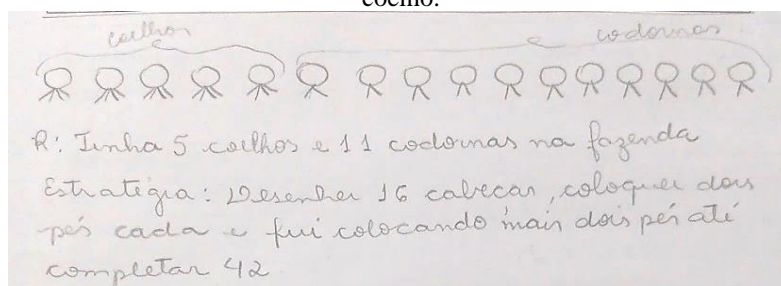 coelho.
coelhos e codornas
R: Tinha 5 coelhos e 11 codornas na fazenda
Estratégia: Desenhei 16 cabecas, coloquei dois
pés cada e fui colocando mais dois pés até
completar 42